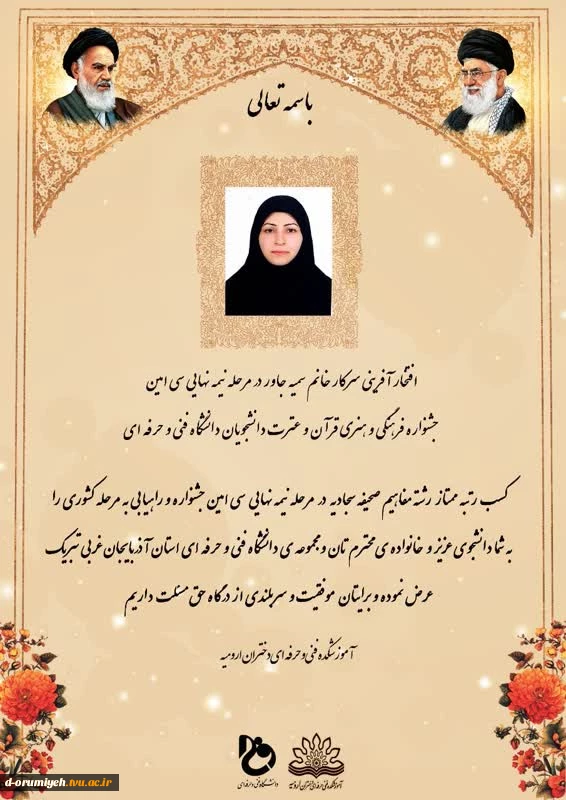 باسمه تعالی
افتخار آفرینی سرکار خانم سمیه جاور در مرحله نیمه نهایی سی امین
جشنواره فرهنگی و هنری قرآن و عترت دانشجویان دانشگاه فنی و حرفه ای
کسب رتبه ممتاز رشته مفاهیم صحیفه سجادیه در مرحله نیمه نهایی سی امین جشنواره و راهیابی به مرحله کشوری را
به شما دانشجوی عزیز و خانواده ی محترم تان و مجموعه ی دانشگاه فنی و حرفه ای استان آذربایجان غربی تبریک
عرض نموده و برایتان موفقیت و سربلندی از درگاه حق مسئلت داریم
آموزشکده فنی و حرفه ای دختران ارومیه
آموزشکده فنی و حرفه ای دختران ارومیه
دانشگاه فنی و حرفه ای
d-orumiyeh.tvu.ac.ir